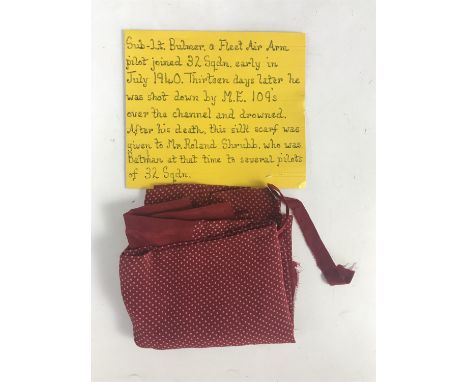 Sub-Lt. Bulmer, a Fleet Air Arm
pilot joined 32 Sqdn. early in
July 1940. Thirteen days later he
was shot down by M.E. 109's
over the channel and drowned.
After his death, this silk scarf was
given to Mr. Roland Shrubb, who was
Batman at that time to several pilots
of 32 Sqdn.